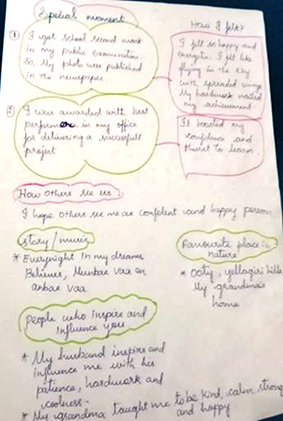 Special moment
How I felt?
① I got school second mark
in my public examination.
So, My photo was published
in the newspaper
I felt so happy and
energetic. I felt like
flying in the sky
with spreaded wings
My hardwork
my achievement.
② I was awarded with best
performer in my office
for delivering a successful
project
It boosted my
confidence and
thirst to learn
How others see us
I hope others see me as confident and happy person
story/music
* Everynight In my dreams
Believer, Munbae vaa en
anbae vaa
Favourite place in
nature
* Ooty, yellagiri hills
My grandma's
home
People who inspire and
influence you
* My husband inspire and
influence me with his
patience, hardwork and
coolness.
* My grandma taught me to be kind, calm, strong
and happy